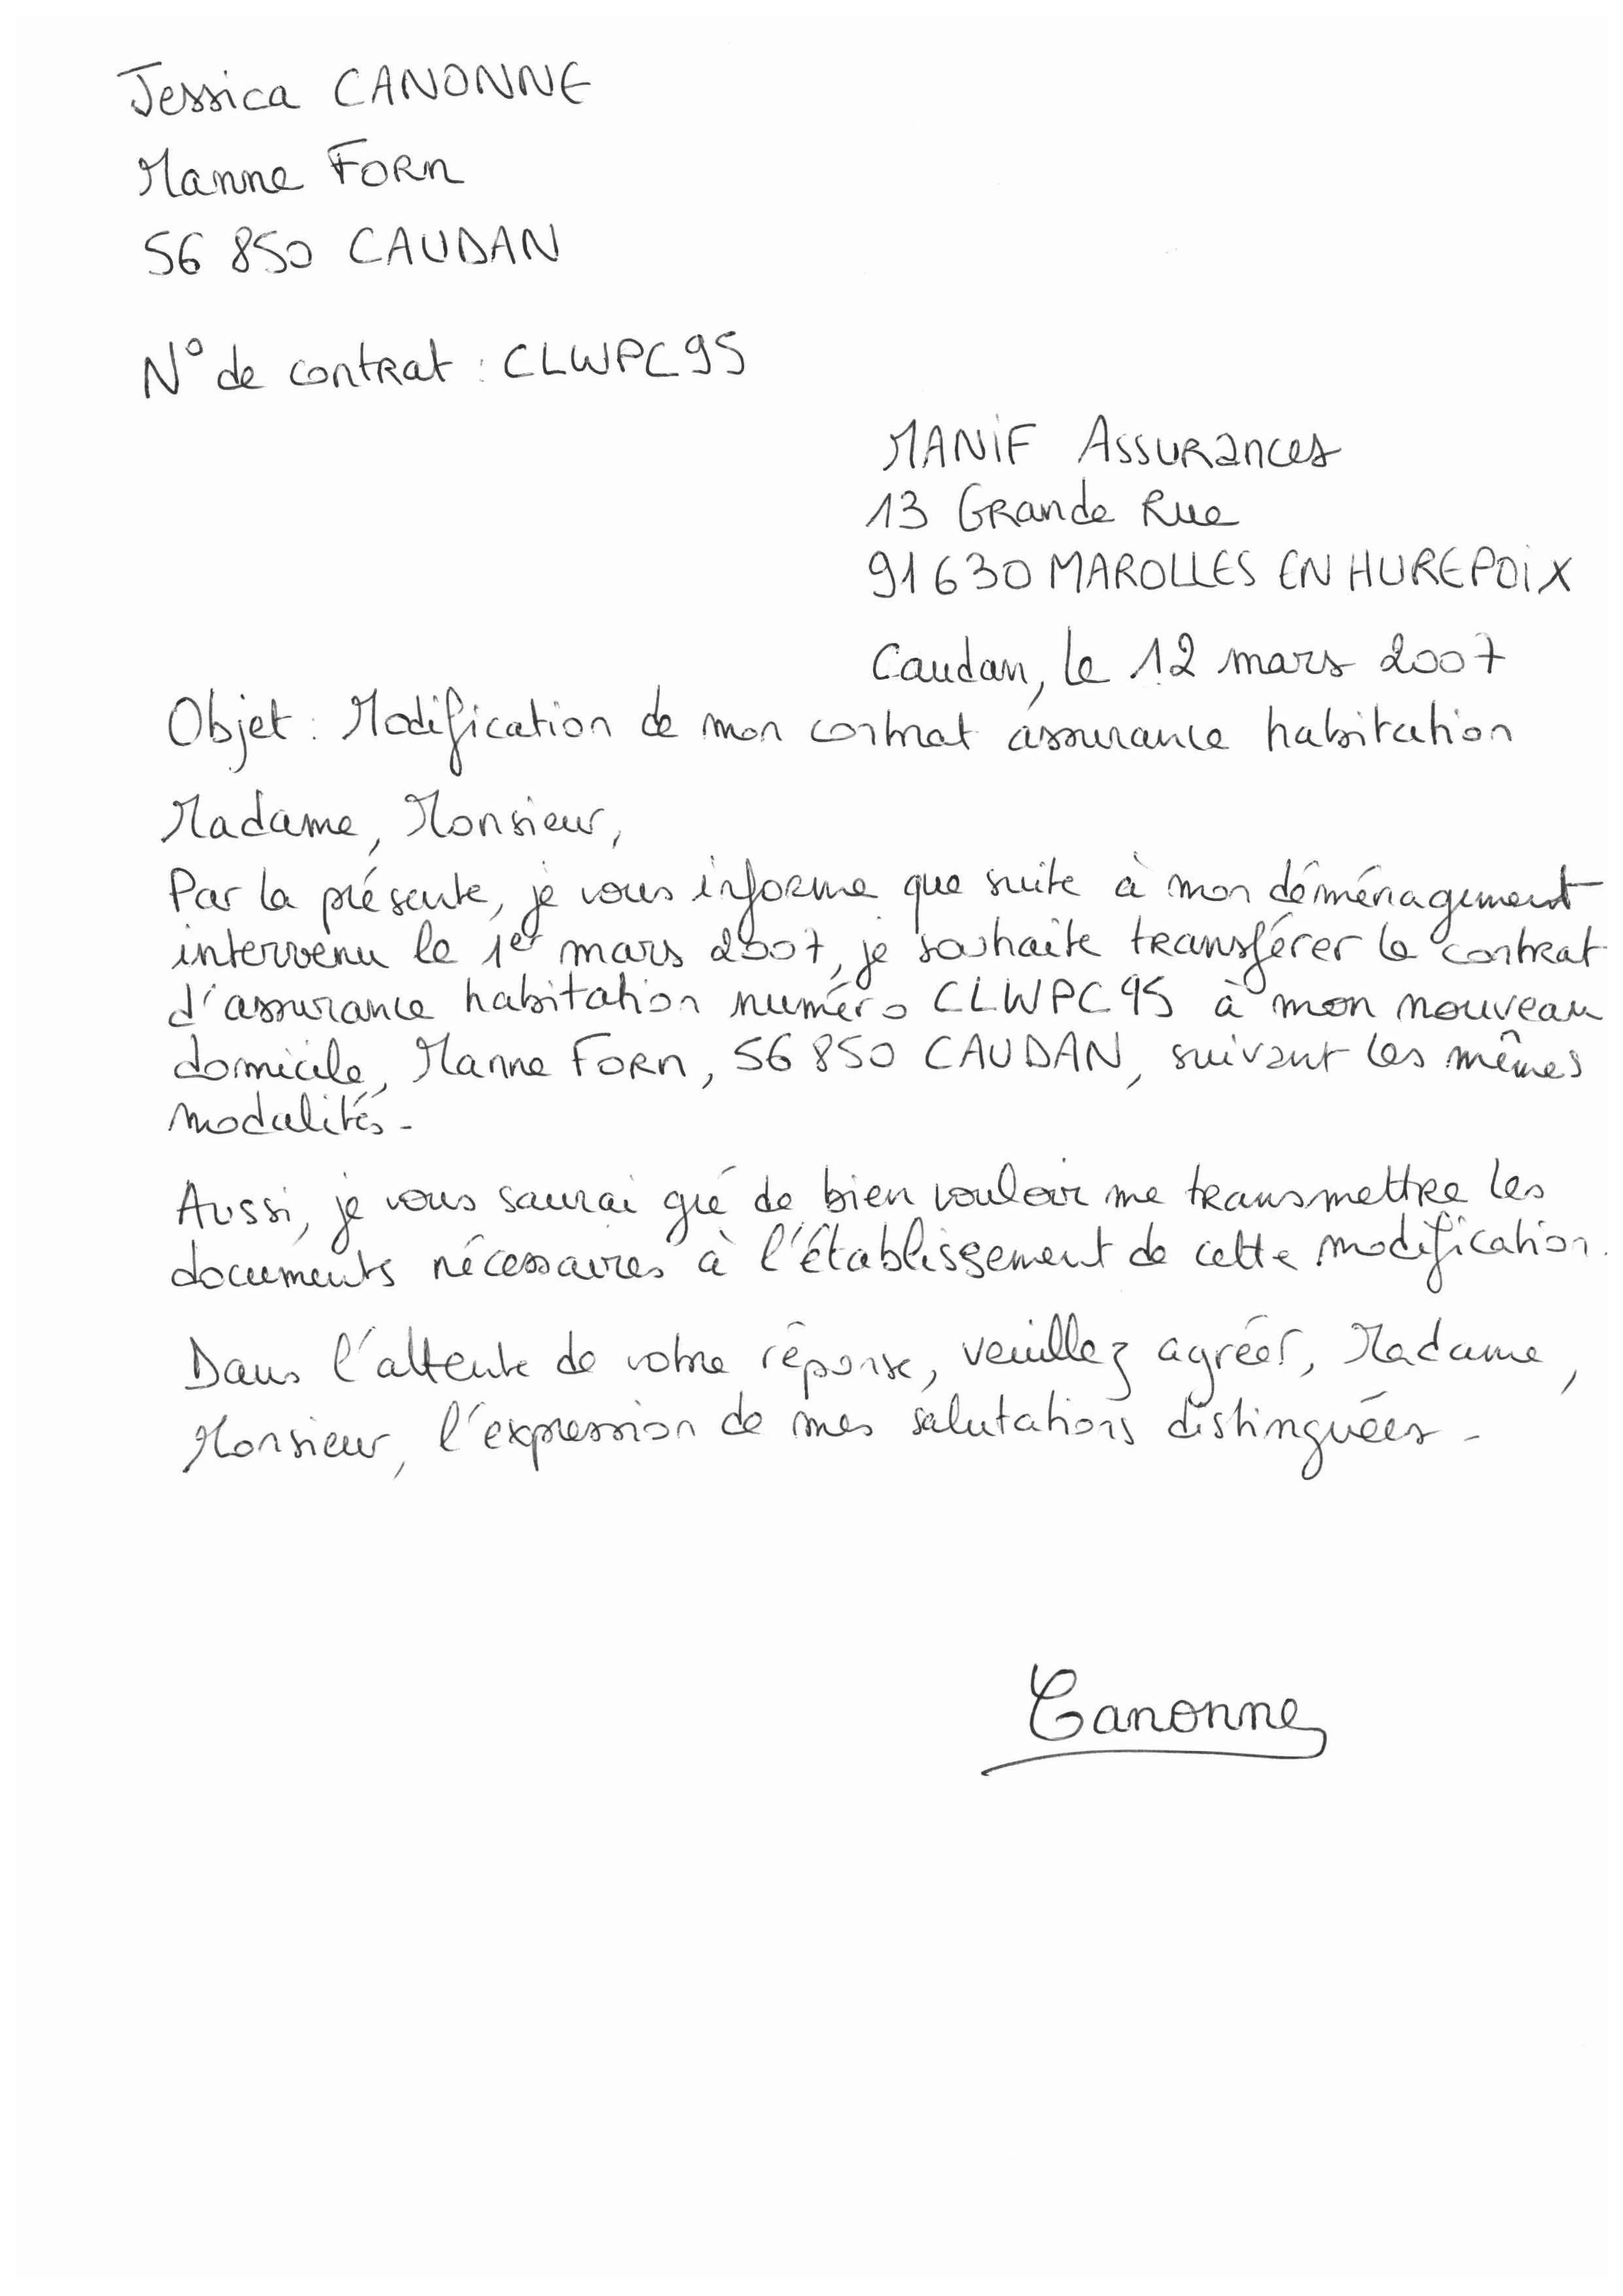 Jessica CANONNE
Manne Forn
56 850 CAUDAN
N° de contrat : CLWPC95
MANiF Assurances
13 Grande Rue
91630 MAROLLES EN HUREPOiX
Caudan, le 12 mars 2007
Objet : Modification de mon contrat assurance habitation
Madame, Monsieur,
Par la présente, je vous informe que suite à mon déménagement
intervenu le 1er mars 2007, je souhaite transférer le contrat
d'assurance habitation numéro CLWPC95 à mon nouveau
domicile, Manne Forn, 56 850 CAUDAN, suivant les mêmes
modalités.
Aussi, je vous saurai gré de bien vouloir me transmettre les
documents nécessaires à l'établissement de cette modification.
Dans l'attente de votre réponse, veuillez agréer, Madame,
Monsieur, l'expression de mes salutations distinguées.
Canonne